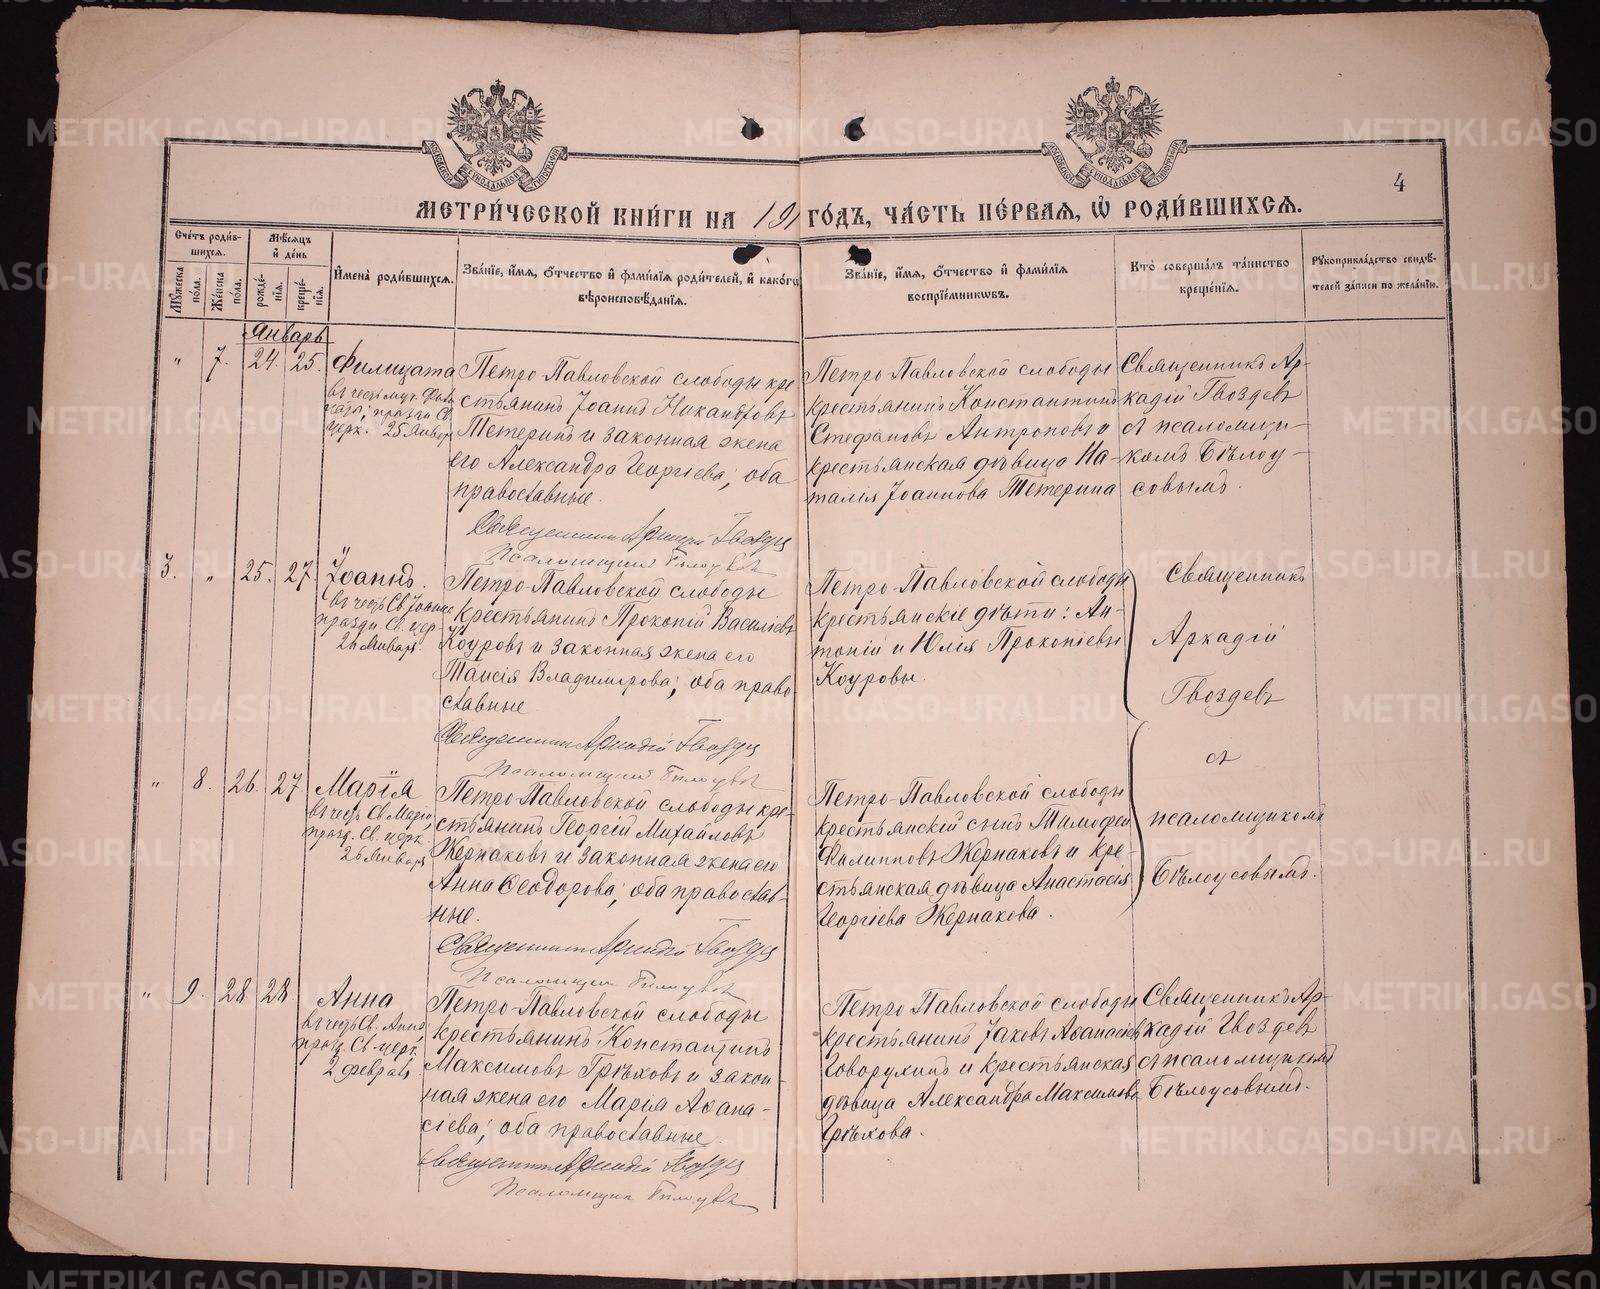 METRIKI.GASO-URAL.RU
4
МЕТРИ́ЧЕСКОЙ КНИ́ГИ НА 191 ГО́ДЪ, ЧА́СТЬ ПЕ́РВАЯ, Ѡ РОДИ́ВШИХСЯ.
Сче́тъ роди́вшихся.
Му́жеска по́ла.
Же́нска по́ла.
Мѣ́сяцъ и҆ де́нь
рожде́нія.
креще́нія.
И҆мена̀ роди́вшихся.
Зва́ніе, и҆́мя, ѻ҆́тчество и҆ фами́лія роди́телей, и҆ како́гѡ
вѣроисповѣ́данія.
Зва́ніе, и҆́мя, ѻ҆́тчество и҆ фами́лія
воспріе́мникѡвъ.
Кто̀ соверша́лъ та́инство
креще́нія.
Рꙋкоприкла́дство свидѣ́телей за́писи по жела́нію.
Январь
" 7. 24. 25.
Филицата
въ честь муч. Фили
цаты; праздн. Св.
церк. 25 Января
Петро-Павловской слободы кре
стьянинъ Іоаннъ Никандровъ
Тетеринъ и законная жена
его Александра Георгіева; оба
православные.
Священникъ Аркадій Гвоздевъ
Псаломщикъ Бѣлоусовъ
Петро-Павловской слободы
крестьянинъ Константинъ
Стефановъ Антроповъ и
крестьянская дѣвица На-
талія Іоаннова Тетерина
Священникъ Ар-
кадій Гвоздевъ
съ псаломщи-
комъ Бѣлоу-
совымъ.
3. " 25. 27
Іоаннъ.
въ честь Св. Іоанна
праздн. Св. цер.
27 Января
Петро-Павловской слободы
крестьянинъ Прокопій Василіевъ
Коуровъ и законная жена его
Таисія Владимірова; оба право-
славные
Священникъ Аркадій Гвоздевъ
Псаломщикъ Бѣлоусовъ
Петро-Павловской слободы
крестьянскіе дѣти: Ан-
тоній и Юлія Прокопіевы
Коуровы.
Священникъ
Аркадій
Гвоздевъ
съ
псаломщикомъ
Бѣлоусовымъ.
" 8. 26. 27
Марія
въ честь Св. Маріи,
празд. Св. церк.
26 Января
Петро-Павловской слободы кре-
стьянинъ Георгій Михайловъ
Жернаковъ и законная жена его
Анна Ѳеодорова; оба православ-
ные.
Священникъ Аркадій Гвоздевъ
Псаломщикъ Бѣлоусовъ
Петро-Павловской слободы
крестьянскій сынъ Тимофей
Филипповъ Жернаковъ и кре-
стьянская дѣвица Анастасія
Георгіева Жернакова.
" 9. 28 28
Анна
въ честь Св. Анны,
празд. Св. церк.
2 февраля
Петро-Павловской слободы
крестьянинъ Константинъ
Максимовъ Грѣховъ и закон-
ная жена его Марія Аѳана-
сіева; оба православные.
Священникъ Аркадій Гвоздевъ
Псаломщикъ Бѣлоусовъ
Петро-Павловской слободы
крестьянинъ Іаковъ Аѳанасіевъ
Говорухинъ и крестьянская
дѣвица Александра Максимова
Грѣхова.
Священникъ Ар-
кадій Гвоздевъ
съ псаломщикомъ
Бѣлоусовымъ.